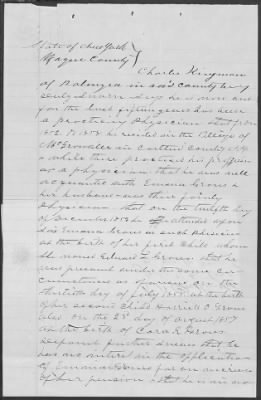 State of New York
Wayne County
Charles Kingman
of Palmyra in said county being
duly sworn says he is now and
for the last fifteen years has been
a practicing Physician that from
to 1858 he resided in the village of
McGrawville in Cortland County N.Y.
& while there practiced his profession
as a physician that he was well
acquainted with Emma Grous &
her husband was their family
Physician that on the twelfth day
of December 1853 he attended upon
said Emma as such Physician
at the birth of her first child whom
she named Edward L Grous that he
was present under the same cir-
cumstances as Physician on the
thirtieth day of July 1855 at the birth
of her second child Harriet C Grous
also on the 28 day of August 1857
at the birth of Cora A Grous
deponent further swears that he
has no interest in the application
of Emma Grous for an increase
of her pension & that he is in no